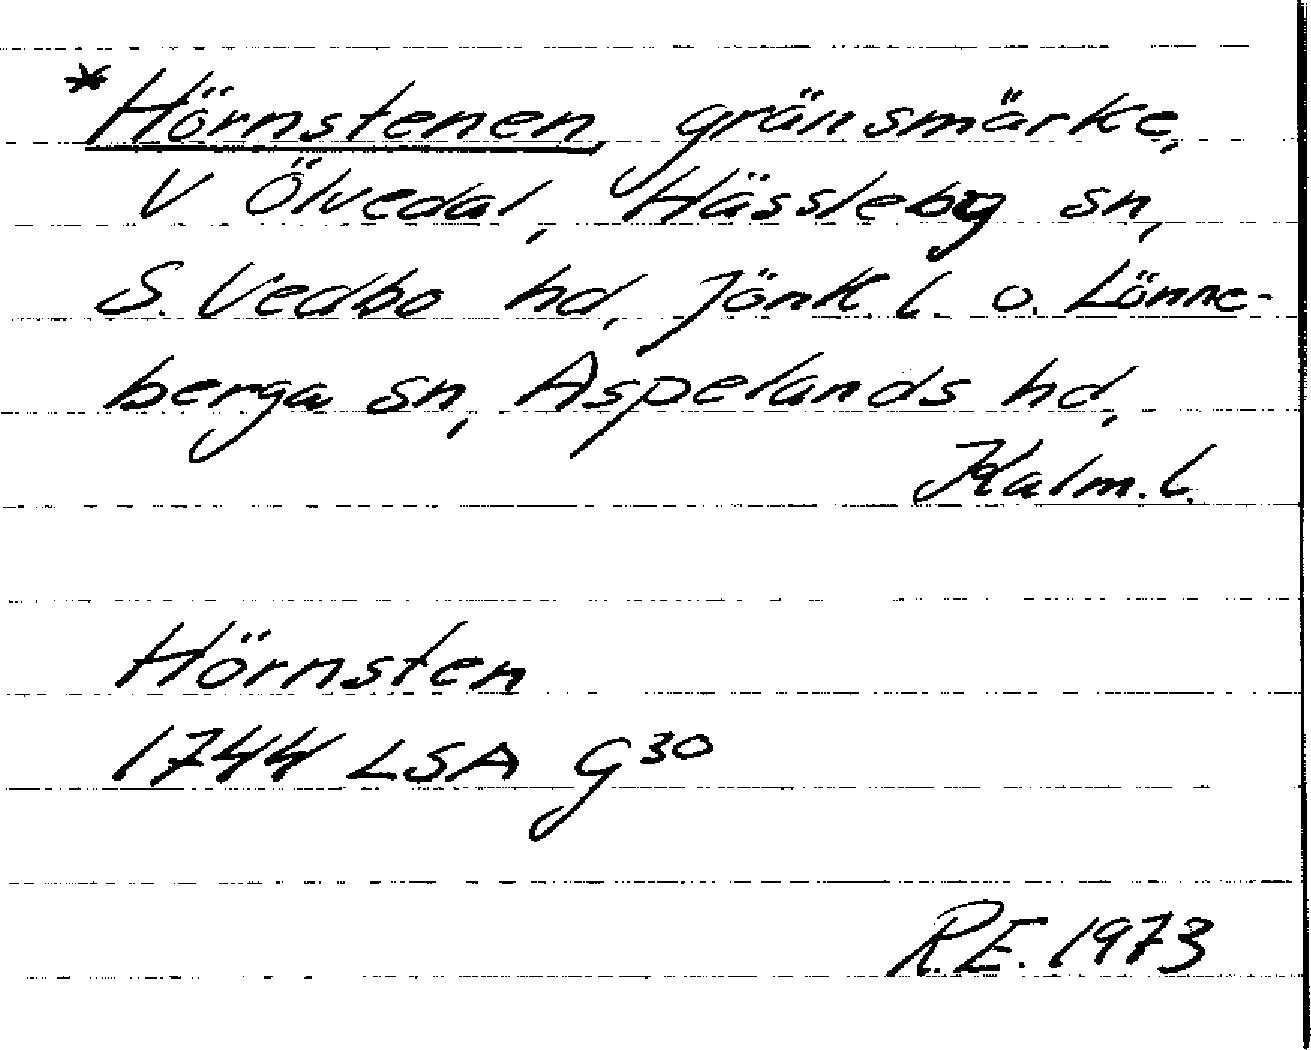 *Hörnstenen, gränsmärke,
V Ölvedal, Hässleby sn,
S. Vedbo hd, Jönk. l. o. Lönne-
berga sn, Aspelands hd,
Kalm. l.
Hörnsten
1744 LSA G30
R.E. 1973